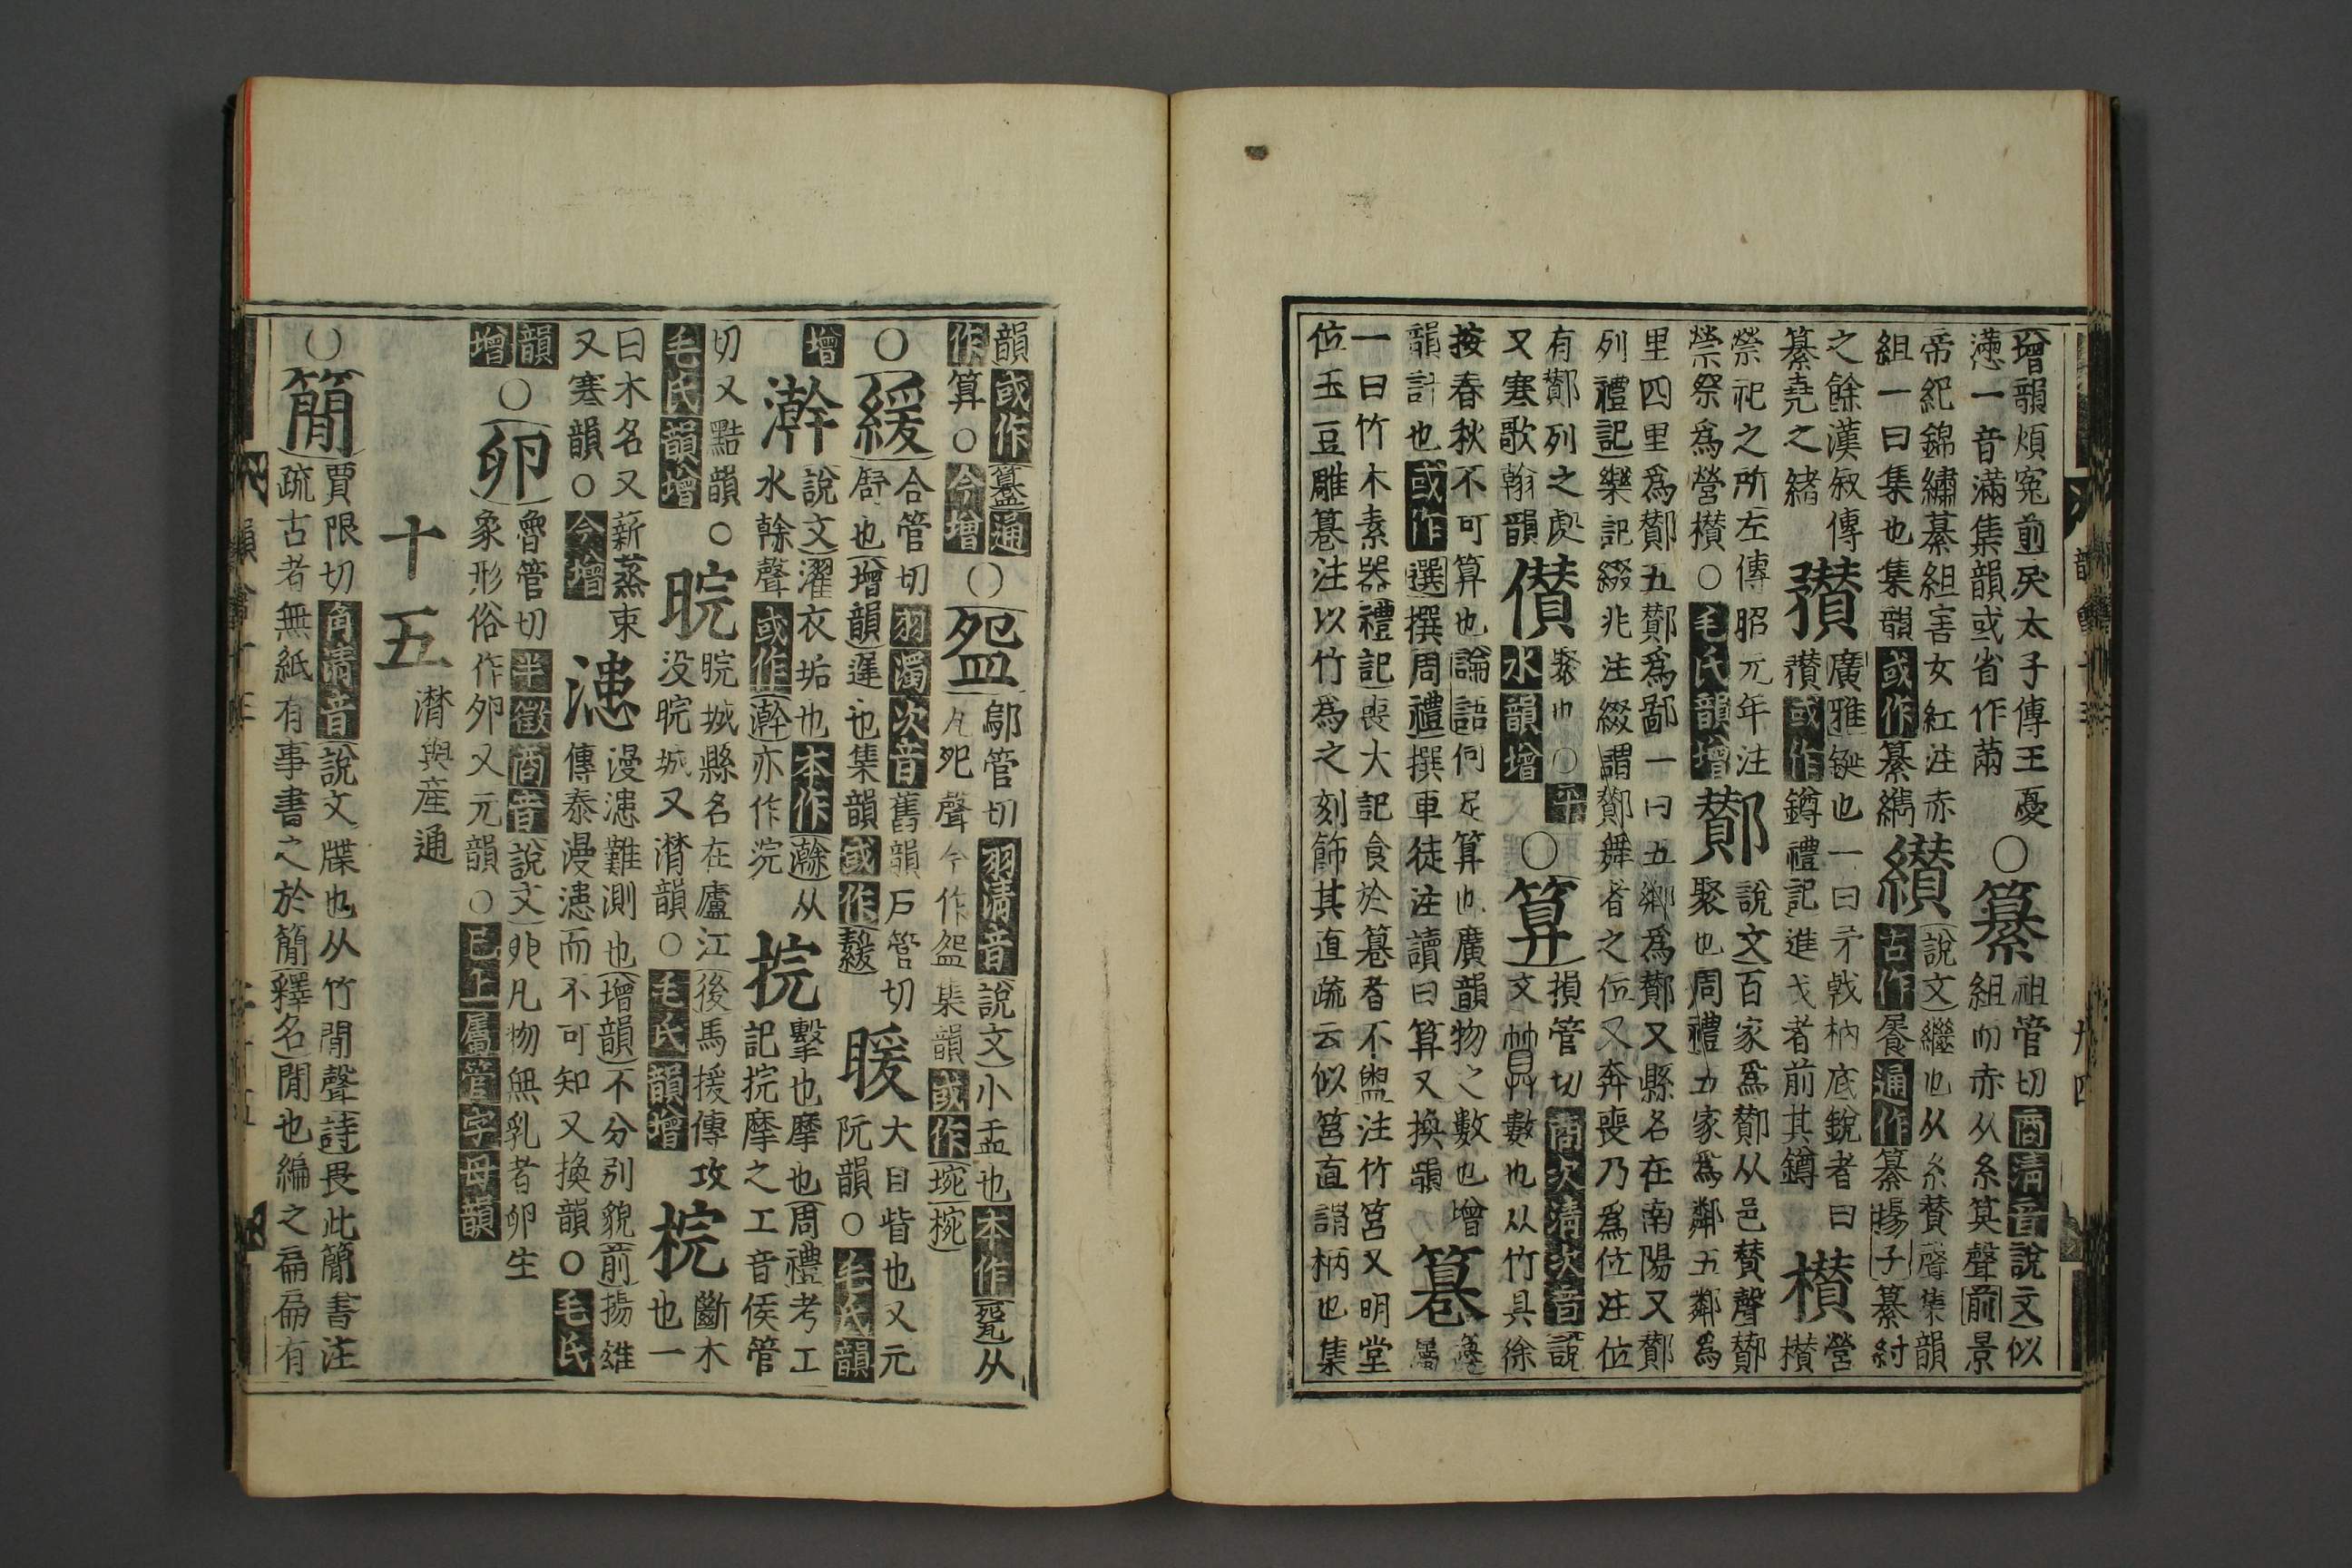 增韻煩寃前戾太子傳王憂懣一音滿集韻或省作㒼○纂祖管切商清音說文似組而赤从糸算聲前景
帝紀錦繡纂組害女紅注赤組一曰集也集韻或作纂纘說文繼也从糸贊聲集韻古作通作纂揚子纂紂
之餘漢叙傳纂堯之緒䂎廣雅鋋也一曰矛戟柄底銳者曰䂎或作鐏禮記進戈者前其鐏欑營欑
禜祀之所左傳昭元年注禜祭爲營欑○毛氏韻增酇說文百家爲酇从邑贊聲酇聚也周禮五家爲鄰五鄰爲
里四里爲酇五酇爲鄙一曰五鄉爲酇又縣名在南陽又酇列禮記樂記綴兆注綴謂酇舞者之位又奔喪乃爲位注位
有酇列之處又寒歌翰韻儹聚也○平水韻增○算損管切商次清次音說文數也从竹具徐
按春秋不可算也論語何足算也廣韻物之數也增韻計也或作選撰周禮撰車徒注讀曰算又換韻篹籩屬
一曰竹木素器禮記喪大記食於篹者不盥注竹筥又明堂位玉豆雕篹注以竹爲之刻飾其直疏云似筥直謂柄也集
韻或作簋通作算○今增○盌鄔管切羽清音說文小盂也本作㼝从瓦夗聲今作盌集韻或作琬椀
○緩合管切羽濁次音舊韻戶管切舒也增韻遲也集韻或作䋎睆大目皆也又元阮韻○毛氏韻
增澣說文濯衣垢也本作𤃬从水榦聲或作瀚亦作浣捖擊也摩也周禮考工記捖摩之工音侯管
切又黠韻○毛氏韻增晥晥城縣名在廬江後馬援傳攻没晥城又潸韻○毛氏韻增梡斷木也一
曰木名又薪蒸束又寒韻○今增漶漫漶難測也增韻不分別貌前揚雄傳泰漫漶而不可知又換韻○毛氏
韻增○卵魯管切半徵商音說文卵凡物無乳者卵生象形俗作夘又元韻○已上屬管字母韻
十五潸與産通
○簡賈限切角清音說文牒也从竹閒聲詩畏此簡書注疏古者無紙有事書之於簡釋名閒也編之扁扁有